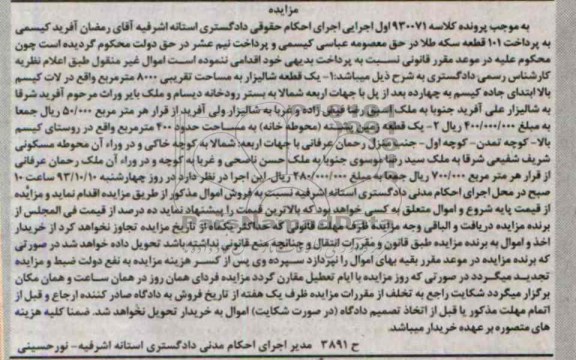 مزایده
به موجب پرونده کلاسه ۹۳۰۰۷۱ اول اجرایی اجرای احکام حقوقی دادگستری استانه اشرفیه آقای رمضان آفرید کیسمی
به پرداخت ۱۰۱ قطعه سکه طلا در حق معصومه عباسی کیسمی و پرداخت نیم عشر در حق دولت محکوم گردیده است چون
محکوم علیه در موعد مقرر قانونی نسبت به پرداخت بدیهی خود اقدامی ننموده است اموال غیر منقول طبق اعلام نظریه
کارشناس رسمی دادگستری به شرح ذیل میباشد: ۱- یک قطعه شالیزار به مساحت تقریبی ۸۰۰۰ مترمربع واقع در لات کیسم
بالا ابتدای جاده کیسم به چهارده بعد از پل با جهات اربعه شمالا به بستر رودخانه دیسام و ملک بایر وراث مرحوم آفرید شرقا
به شالیزار علی آفرید جنوبا به ملک زاده و غربا به شالیزار ولی آفرید از قرار هر متر مربع ۵۰/۰۰۰ ریال جمعا
به مبلغ ۴۰۰/۰۰۰/۰۰۰ ریال ۲- یک قطعه (محوطه خانه) به مساحت حدود ۴۰۰ مترمربع واقع در روستای کیسم
بالا- کوچه تمدن- کوچه اول- جنب منزل رحمان عرفانی با جهات اربعه: شمالا به کوچه خاکی و در وراء آن محوطه مسکونی
شریف شفیعی شرقا به ملک سید رضا موسوی جنوبا به ملک حسن ناصحی و غربا به کوچه و در وراء آن ملک رحمان عرفانی
از قرار هر متر مربع ۷۰۰/۰۰۰ ریال جمعا به مبلغ ۲۸۰/۰۰۰/۰۰۰ ریال. این اجرا در نظر دارد در روز چهارشنبه ۹۳/۱۰/۱۰ ساعت ۱۰
صبح در محل اجرای احکام مدنی دادگستری استانه اشرفیه نسبت به فروش اموال مذکور از طریق مزایده اقدام نماید و مزایده
از قیمت پایه شروع و اموال متعلق به کسی خواهد بود که بالاترین قیمت را پیشنهاد نماید ده درصد از قیمت فی المجلس از
برنده مزایده دریافت و الباقی وجه مزایده ظرف مهلت قانونی که حداکثر یکماه از تاریخ مزایده تجاوز نخواهد کرد از خریدار
اخذ و اموال به برنده مزایده طبق قانون و مقررات انتقال و چنانچه منع قانونی نداشته باشد تحویل داده خواهد شد در صورتی
که برنده مزایده در موعد مقرر بقیه بهای اموال را نپردازد سپرده وی پس از کسر هزینه مزایده به نفع دولت ضبط و مزایده
تجدید میگردد در صورتی که روز مزایده با ایام تعطیل مقارن گردد مزایده فردای همان روز در همان ساعت و همان مکان
برگزار میگردد شکایت راجع به تخلف از مقررات مزایده ظرف یک هفته از تاریخ فروش به دادگاه صادر کننده ارجاع و قبل از
اتمام مهلت مذکور یا قبل از اتخاذ تصمیم دادگاه (در صورت شکایت) اموال به خریدار تحویل نخواهد شد. ضمنا کلیه هزینه
های متصوره بر عهده خریدار میباشد.
ح ۳۸۹۱ مدیر اجرای احکام مدنی دادگستری استانه اشرفیه- نورحسینی